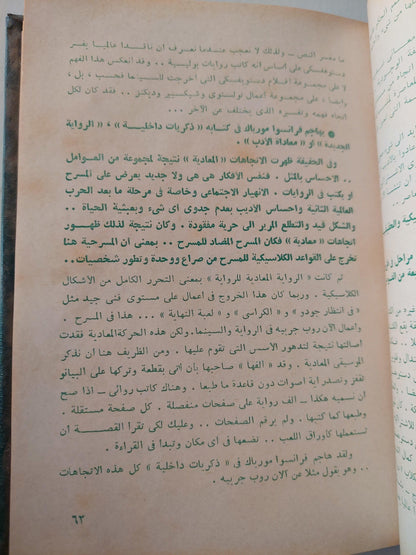 ما معمر النص – ولذلك لا نعجب عندما نعرف أن ناقدا عالميا يفسر
دستوفسكى على أساس أنه كاتب روايات بوليسية .. وقد انعكس هذا الفهم
لا على مجموعة أفلام دستويفسكى التى أخرجت للسينما فحسب ، بل ،
وأيضا ، على مجموعة أعمال تولستوى وشكسبير وديكنز .. فقد كان لكل
اتجاه فهمه وتفسيره الذى يختلف عن الآخر ...
● يهاجم فرانسوا مورياك فى كتابه « ذكريات داخلية » ، « الرواية
الجديدة » أو « معاداة الأدب » .
وفى الحقيقة ظهرت الاتجاهات « المعادية » نتيجة لمجموعة من العوامل
.. الاحساس بالمثل . فنفس الأفكار هى هى ولا جديد يعرض على المسرح
أو يكتب فى الروايات . الانهيار الاجتماعى وخاصة فى مرحلة ما بعد الحرب
العالمية الثانية واحساس الأديب بعدم جدوى أى شىء وبعبثية الحياة ..
والشكل قيد والتطلع المرير الى حرية مفقودة . وكان نتيجة لذلك ظهور
اتجاهات « معادية » فكان المسرح المضاد للمسرح .. بمعنى أن المسرحية هنا
تخرج على القواعد الكلاسيكية للمسرح من صراع ووحدة وتطور شخصيات ..
ثم كانت « الرواية المعادية للرواية » بمعنى التحرر الكامل من الأشكال
الكلاسيكية . وربما كان هذا الخروج فى أعمال على مستوى فنى جيد مثل
« فى انتظار جودو » و « الكراسى » و « لعبة النهاية » ... هذا فى المسرح .
وأعمال آلان روب جرييه فى الرواية والسينما. ولكن هذه الحركة المعادية فقدت
أصالتها نتيجة لتدهور الأسس التى تقوم عليها . ومن الظريف هنا أن نذكر
الموسيقى المعادية . وقد « ألفها » صاحبها بأن أتى بقطعة وتركها على البيانو
تقفز وتصدر أية أصوات دون قاعدة ما طبعا . وهناك كاتب روائى .. اذا صح
أن نسميه هكذا .. ألف رواية على صفحات منفصلة . كل صفحة مستقلة .
وطبعها كما كتبها . ولم يرقم الصفحات .. وعليك لكى تقرأ القصة أن
تستعملها كأوراق اللعب .. نضعها فى أى مكان وتبدأ فى القراءة .
ولقد هاجم فرانسوا مورياك فى « ذكريات داخلية » كل هذه الاتجاهات
.. وهو يقول مثلا عن آلان روب جرييه .
٦٣